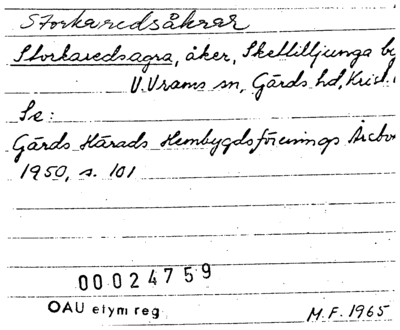 Storkaredsåkrar
Storkaredsagra, åker, Skettilljunga by
V. Vrams sn, Gärds hd, Krist.
Se:
Gärds Härads Hembygdsförenings Årsbo
1950, s. 101
00024759
OAU etym reg
M.F. 1965